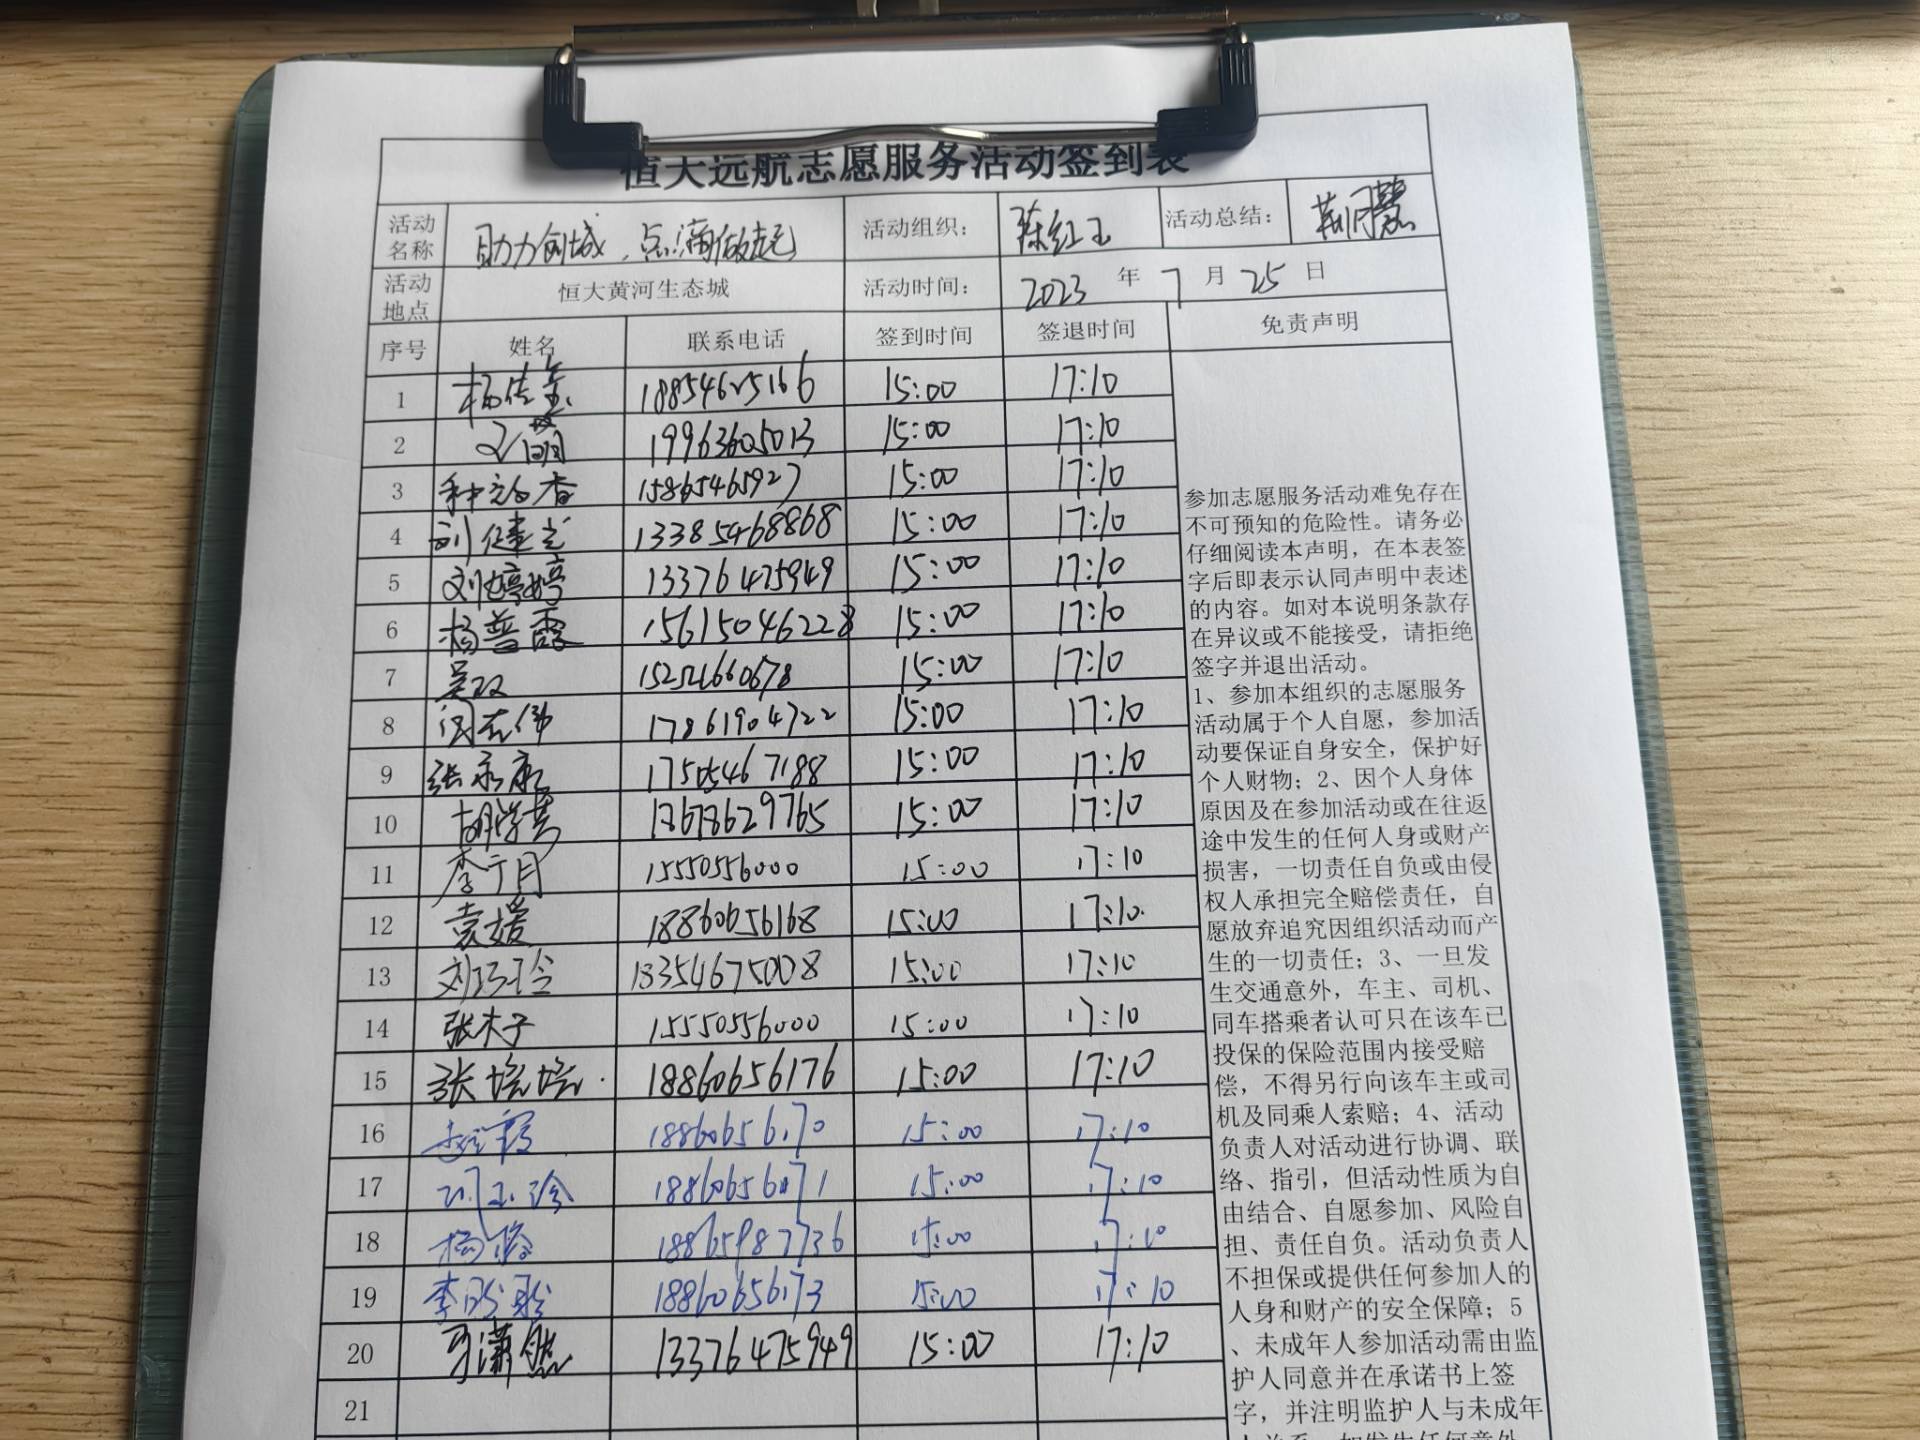 恒大远航志愿服务活动签到表
活动名称 助力创城，点滴做起 活动组织： 陈红玉 活动总结：
活动地点 恒大黄河生态城 活动时间： 2023 年 7 月 25 日
序号 姓名 联系电话 签到时间 签退时间 免责声明
1 杨佳玺 18854625166 15:00 17:10
2 19963605013 15:00 17:10
3 15865465927 15:00 17:10
4 刘健 13385468868 15:00 17:10
5 刘婷婷 13376475949 15:00 17:10
6 杨普霞 15615046228 15:00 17:10
7 吴双 15:00 17:10
8 闫志伟 17861904722 15:00 17:10
9 张永康 17505467188 15:00 17:10
10 胡学营 17678629765 15:00 17:10
11 李丁月 15550556000 15:00 17:10
12 袁媛 18860656168 15:00 17:10
13 刘巧玲 18354675008 15:00 17:10
14 张木子 15550556000 15:00 17:10
15 张培培 18860656176 15:00 17:10
16 18860656170 15:00 17:10
17 18860656171 15:00 17:10
18 18865987736 15:00 17:10
19 李盼盼 18860656173 15:00 17:10
20 13376475949 15:00 17:10
21
参加志愿服务活动难免存在
不可预知的危险性。请务必
仔细阅读本声明，在本表签
字后即表示认同声明中表述
的内容。如对本说明条款存
在异议或不能接受，请拒绝
签字并退出活动。
1、参加本组织的志愿服务
活动属于个人自愿，参加活
动要保证自身安全，保护好
个人财物；2、因个人身体
原因及在参加活动或在往返
途中发生的任何人身或财产
损害，一切责任自负或由侵
权人承担完全赔偿责任，自
愿放弃追究因组织活动而产
生的一切责任；3、一旦发
生交通意外，车主、司机、
同车搭乘者认可只在该车已
投保的保险范围内接受赔
偿，不得另行向该车主或司
机及同乘人索赔；4、活动
负责人对活动进行协调、联
络、指引，但活动性质为自
由结合、自愿参加、风险自
担、责任自负。活动负责人
不担保或提供任何参加人的
人身和财产的安全保障；5
、未成年人参加活动需由监
护人同意并在承诺书上签
字，并注明监护人与未成年